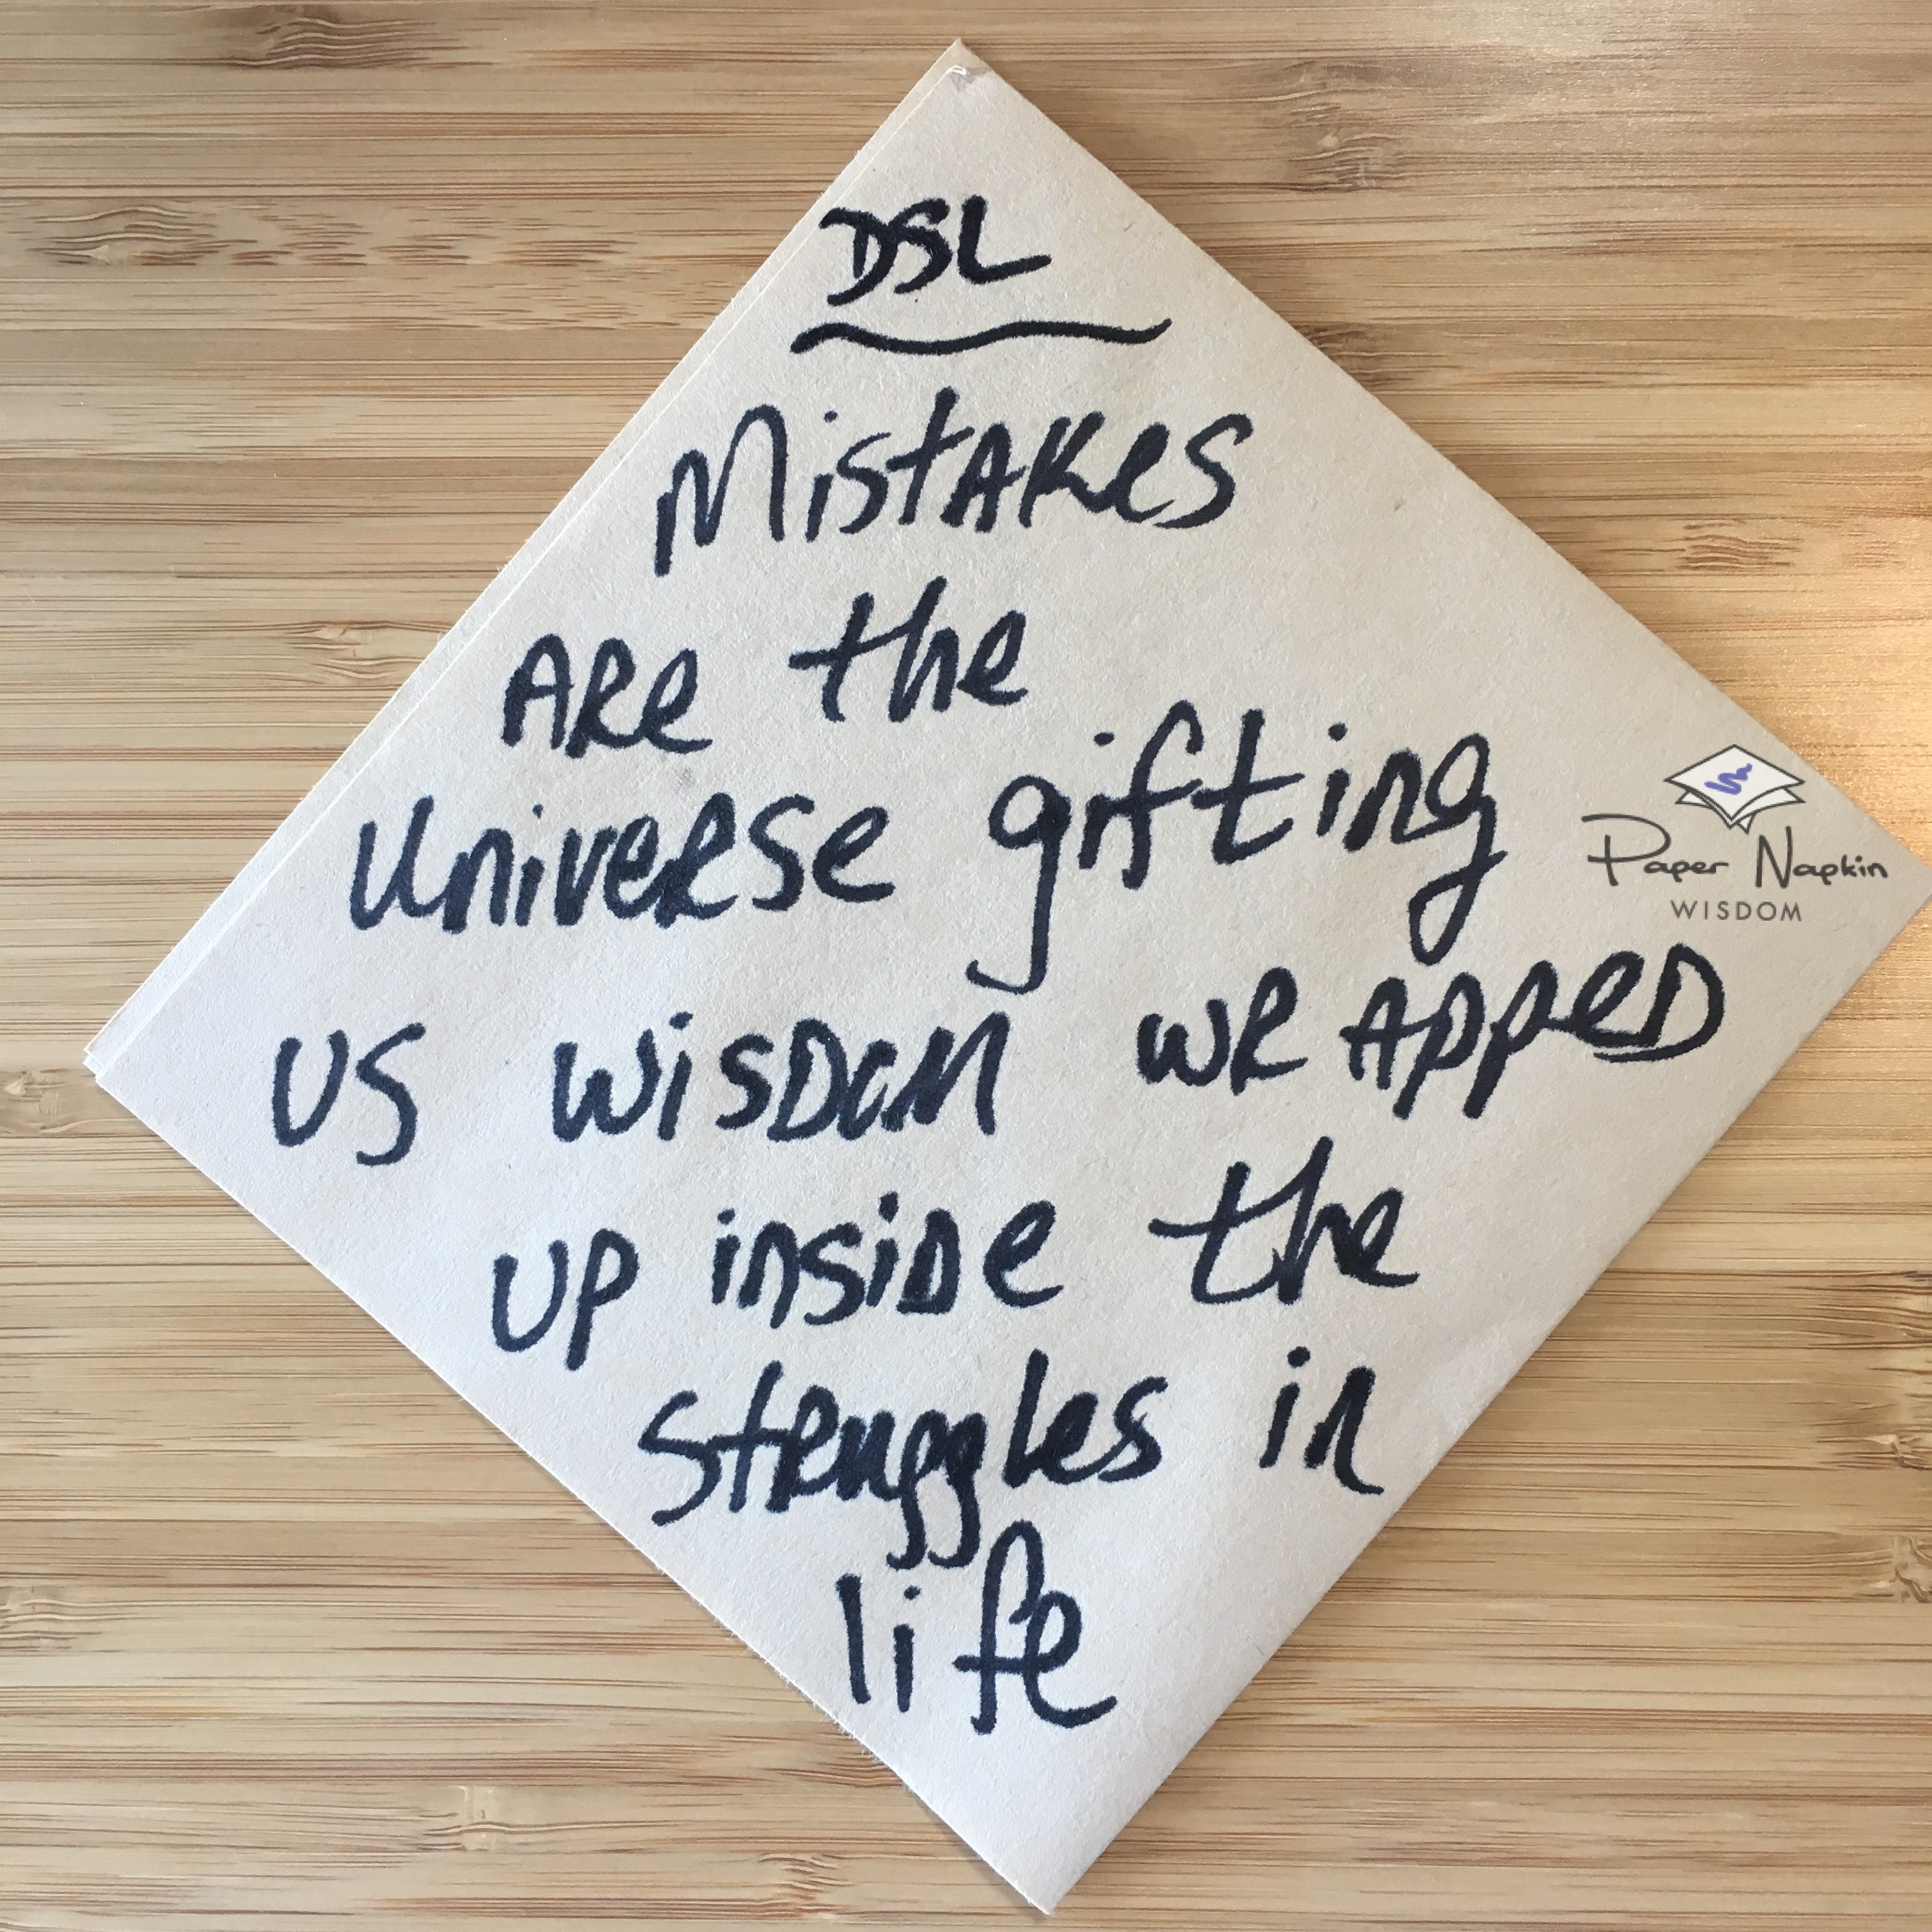 DSL
MistAKes
ARe the
UniveRse gifting
US WisDom WRAppeD
UP insiDe the
stRuggles in
life
Paper Napkin
WISDOM